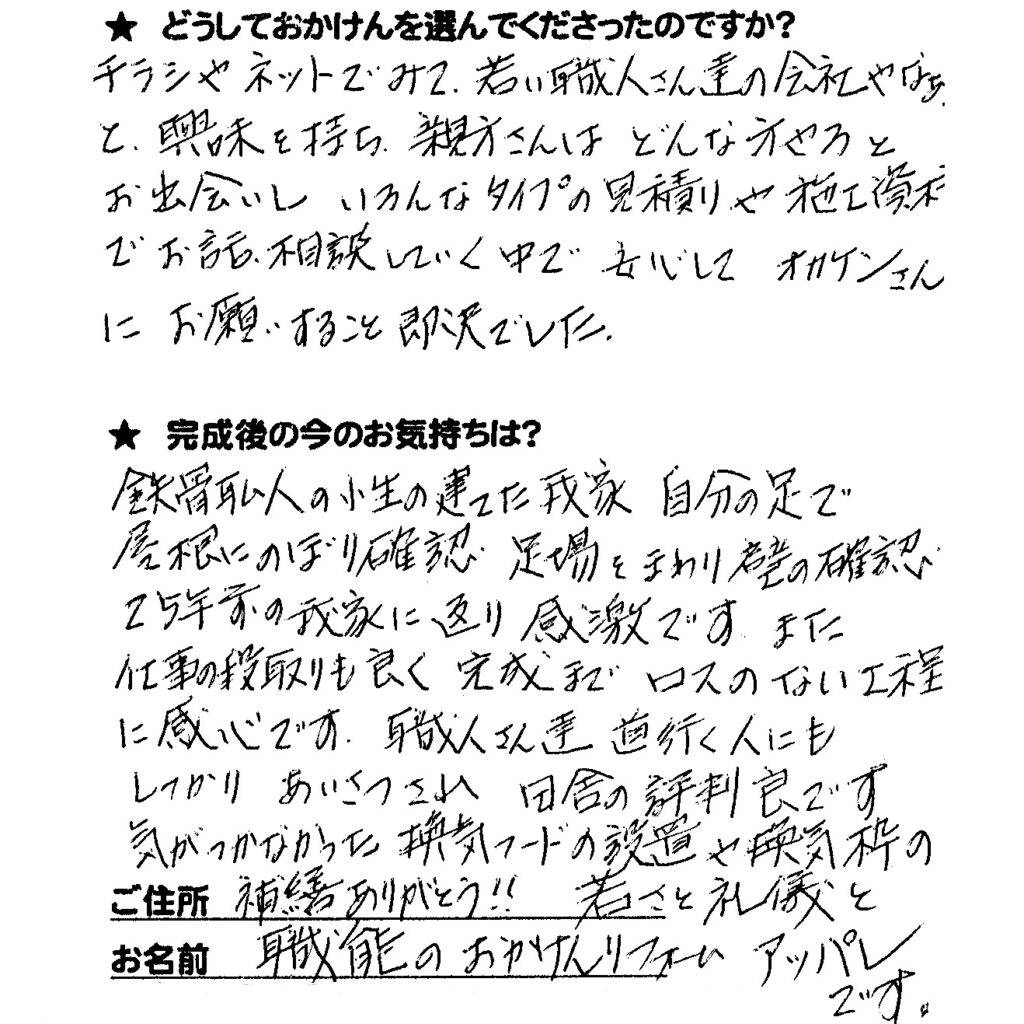 ★ どうしておかけんを選んでくださったのですか？
チラシやネットでみて、若い職人さん達の会社やなぁ
と、興味を持ち、親方さんは どんな方やろと
お出会いし いろんなタイプの見積りや施工資料
でお話、相談していく中で 安心して オカケンさん
に お願いすること即決でした。
★ 完成後の今のお気持ちは？
鉄骨職人の小生の建てた我家 自分の足で
屋根にのぼり確認 足場をまわり壁の確認
25年前の我家に返り 感激です また
仕事の段取りも良く 完成まで ロスのない工程
に感心です。職人さん達 道行く人にも
しっかり あいさつされ 田舎の評判良です
気がつかなかった 換気フードの設置や換気枠の
ご住所 補繕ありがとう!! 若さと礼儀と
お名前 職能のおかけんリフォーム アッパレ
です。